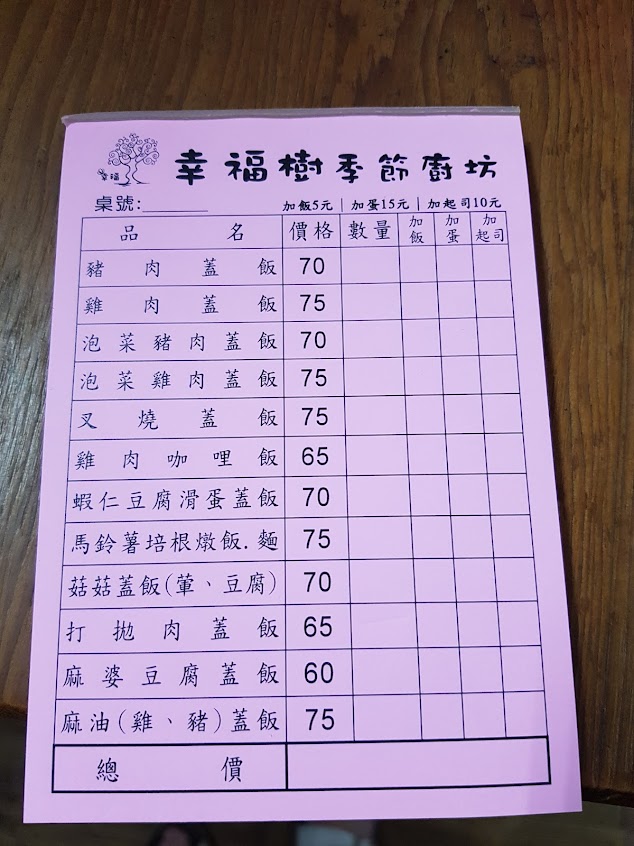 幸福
幸福樹季節廚坊
桌號:
加飯5元 | 加蛋15元 | 加起司10元
品名 價格 數量 加飯 加蛋 加起司
豬肉蓋飯 70
雞肉蓋飯 75
泡菜豬肉蓋飯 70
泡菜雞肉蓋飯 75
叉燒蓋飯 75
雞肉咖哩飯 65
蝦仁豆腐滑蛋蓋飯 70
馬鈴薯培根燉飯.麵 75
菇菇蓋飯(葷、豆腐) 70
打拋肉蓋飯 65
麻婆豆腐蓋飯 60
麻油(雞、豬)蓋飯 75
總價